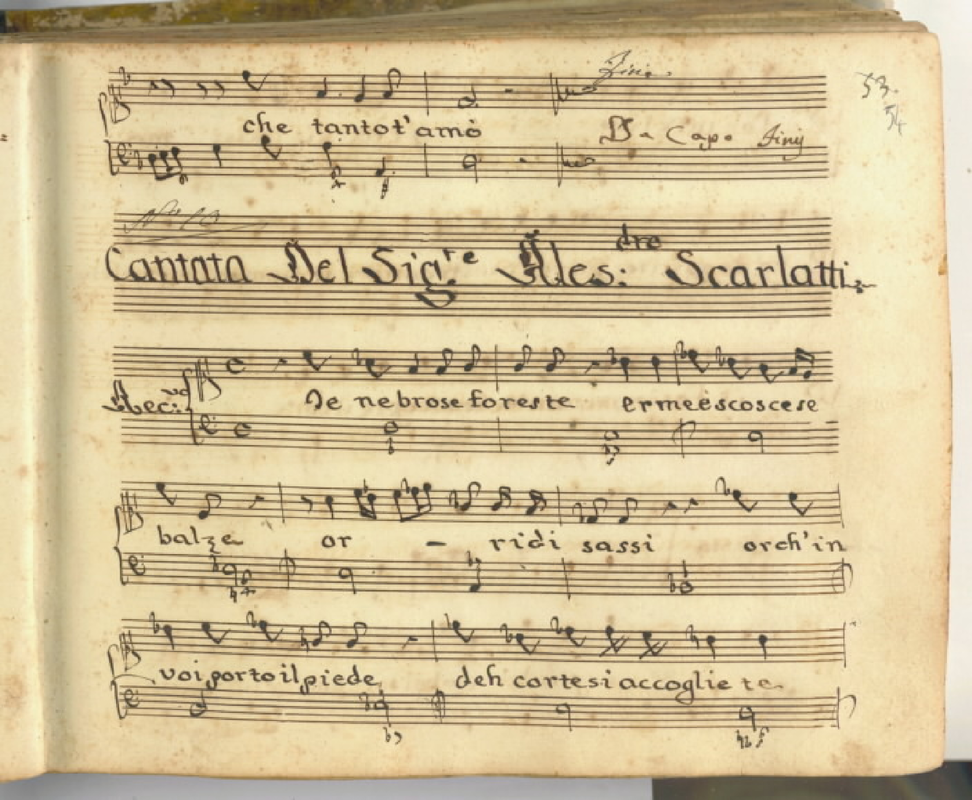 Finis.
53.
54
che tantot'amò
Da Capo Finis
No. 10
Cantata Del Sig.re Ales:dro Scarlatti
Rec:vo
Te nebrose foreste ermeèscoscese
balze or - ridi sassi orch'in
voi porto il piede deh cortesi accoglie te